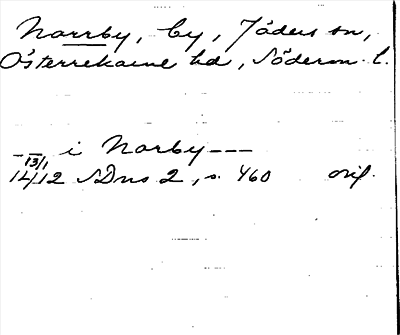 Norrby, by, Jäders sn,
Österrekarne hd, Söderm. l.
— — i Norby — — —
13/1
1412 SDns 2, s. 460 orig.